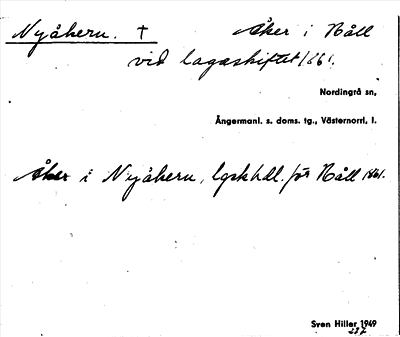 Nyåkern. † Åker i Råll
vid lagaskiftet 1861.
Nordingrå sn,
Ångermanl. s. doms. tg., Västernorrl. l.
Åker i Nyåkern, lgskhdl. för Råll 1861.
Sven Hiller 1949